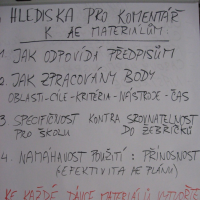 HLEDISKA PRO KOMENTÁŘ
K AE MATERIÁLŮM.
1. JAK ODPOVÍDÁ PŘEDPISŮM
2. JAK ZPRACOVÁNY BODY
OBLASTI-CÍLE-KRITÉRIA-NÁSTROJE-ČAS
3. SPECIFIČNOST KONTRA SROVNATELNOST
PRO ŠKOLU DO ŽEBŘÍČKŮ
4. NAMÁHAVOST POUŽITÍ : PŘÍNOSNOST
(EFEKTIVITA AE PLÁNU)
KE KAŽDÉ DÁVCE MATERIÁLŮ VYTVOŘTE